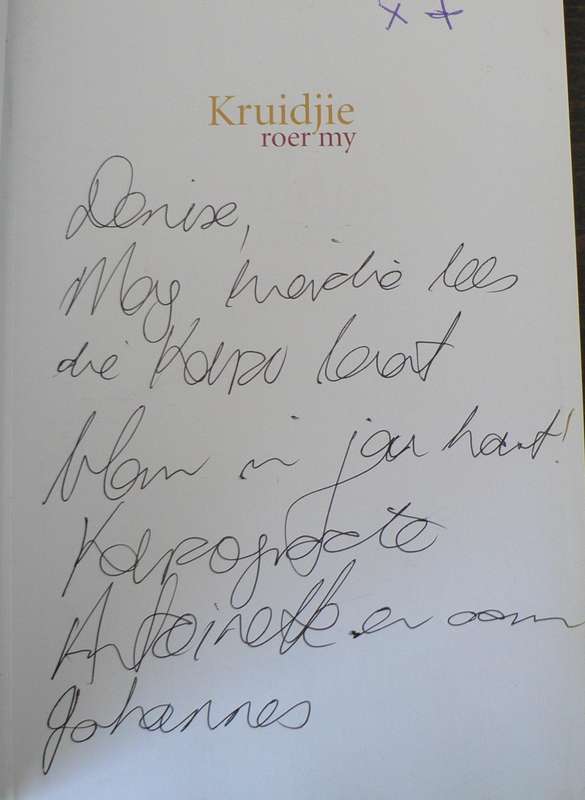 x x
Kruidjie
roer my
Denise,
Mag hierdie lees
die Karoo laat
blom in jou hart!
Karoogroete
Antoinette en oom
Johannes